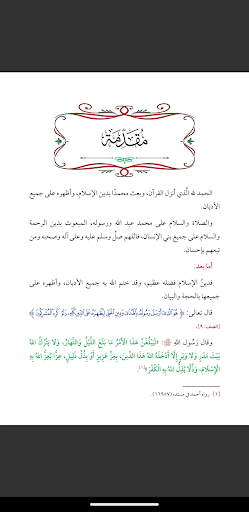 مُقَدِّمَة
الحمد لله الَّذي أنزل القرآن، وبعث محمدًا بدين الإسلام، وأظهره على جميع
الأديان.
والصلاة والسلام على محمد عبد الله ورسوله، المبعوث بدين الرحمة
والسلام على جميع بني الإنسان، فالهم صلّ وسلم عليه وعلى آله وصحبه ومن
تبعهم بإحسان.
أما بعد:
فدينُ الإسلام فضله عظيم، وقد ختم الله به جميع الأديان، وأظهره على
جميعها بالحجة والبيان.
قال تعالى: ﴿هُوَ الَّذِي أَرْسَلَ رَسُولَهُ بِالْهُدَىٰ وَدِينِ الْحَقِّ لِيُظْهِرَهُ عَلَى الدِّينِ كُلِّهِ وَلَوْ كَرِهَ الْمُشْرِكُونَ﴾
[الصف: ٩].
وقال رَسُولِ اللهِ ﷺ: «لَيَبْلُغَنَّ هَذَا الأَمْرُ مَا بَلَغَ اللَّيْلُ وَالنَّهَارُ، وَلَا يَتْرُكُ اللهُ
بَيْتَ مَدَرٍ وَلَا وَبَرٍ إِلَّا أَدْخَلَهُ اللهُ هَذَا الدِّينَ، بِعِزِّ عَزِيزٍ أَوْ بِذُلِّ ذَلِيلٍ، عِزًّا يُعِزُّ اللهُ بِهِ
الإِسْلَامَ، وَذُلًّا يُذِلُّ اللهُ بِهِ الْكُفْرَ»(١).
(١) رواه أحمد في مسنده (١٦٩٥٧).